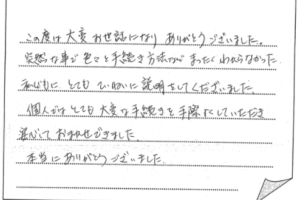 この度は大変お世話になり ありがとうございました。
突然な事で色々と手続き方法がまったくわからなかった
私共にとてもていねいに説明をしてくださいました。
個人ではとても大変な手続きを手際よくしていただき
安心しておまかせできました。
本当にありがとうございました。